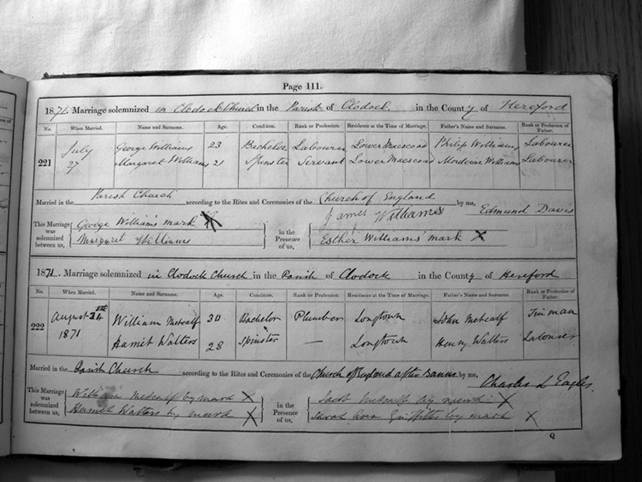 Page 111.
1871. Marriage solemnized in Clodock Church in the Parish of Clodock in the County of Hereford
No. When Married. Name and Surname. Age. Condition. Rank or Profession. Residence at the Time of Marriage. Father's Name and Surname. Rank or Profession of Father.
221 July 27 George Williams 23 Bachelor Labourer Lower Maescoed Philip Williams Labourer
Margaret Williams 21 Spinster Servant Lower Maescoed Williams Labourer
Married in the Parish Church according to the Rites and Ceremonies of the Church of England by me, Edmund Davis
This Marriage was solemnized between us, George William's mark X
Margaret Williams
in the Presence of us, James Williams
Esther Williams' mark X
1871. Marriage solemnized in Clodock Church in the Parish of Clodock in the County of Hereford
No. When Married. Name and Surname. Age. Condition. Rank or Profession. Residence at the Time of Marriage. Father's Name and Surname. Rank or Profession of Father.
222 August 24th 1871 William Metcalf 30 Bachelor Plumber Longtown John Metcalf Tinman
Harriet Walters 28 Spinster — Longtown Henry Walters Labourer
Married in the Parish Church according to the Rites and Ceremonies of the Church of England after Banns by me, Charles L Eagles
This Marriage was solemnized between us, William Metcalf by mark X
Harriet Walters by mark X
in the Presence of us, Metcalf by mark X
Sarah Ann Griffiths by mark X
Q